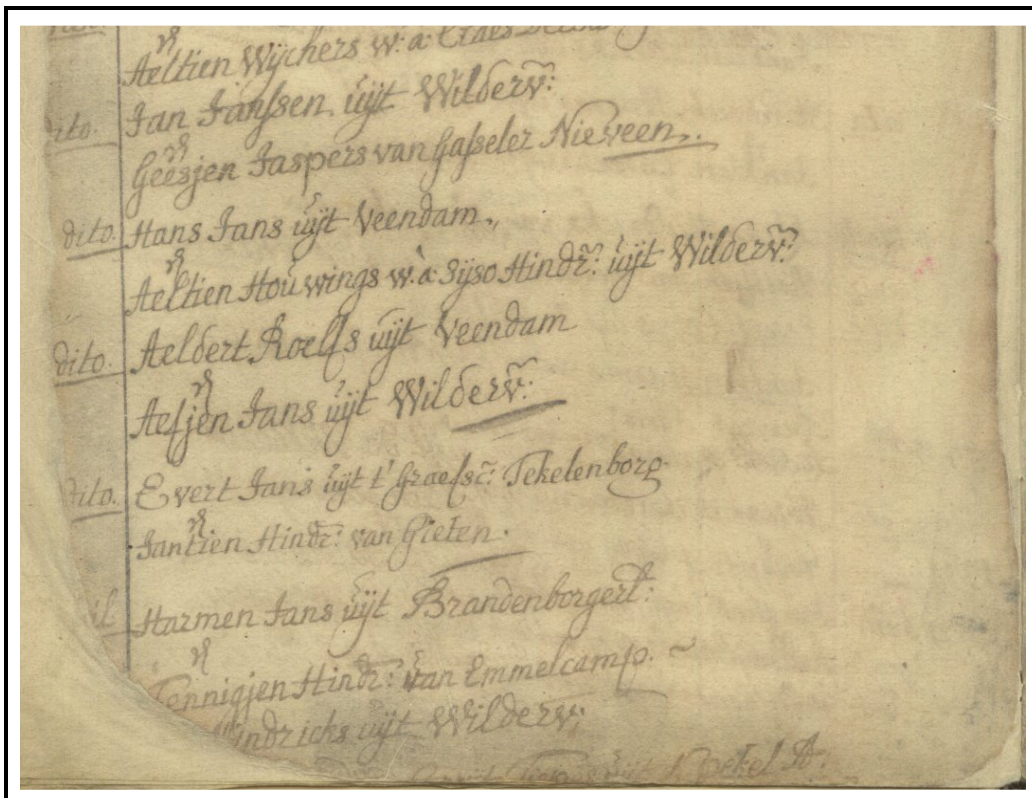 Aeltien Wijchers w: a: Claes
dito. Jan Janssen uijt Wilderv:
Geesjen Jaspers van Gasseler Nieveen.
dito. Hans Jans uijt Veendam.
Aeltien Houwings w: a: Sijso Hindr: uijt Wilderv:
dito. Aeldert Roelfs uijt Veendam
Aefjen Jans uijt Wilderv:
dito. Evert Jans uijt t' Graefsc: Tekelenborg.
Jantien Hindr: van Gieten.
Harmen Jans uijt Brandenborgert:
Tennigjen Hindr: van Emmelcamp.
Hindricks uijt Wilderv:
uijt Pekel A: